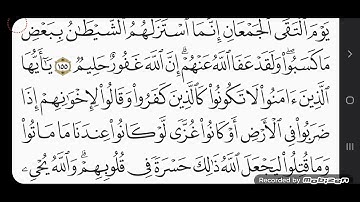 يَوْمَ ٱلْتَقَى ٱلْجَمْعَانِ إِنَّمَا ٱسْتَزَلَّهُمُ ٱلشَّيْطَٰنُ بِبَعْضِ
مَا كَسَبُوا۟ ۖ وَلَقَدْ عَفَا ٱللَّهُ عَنْهُمْ ۗ إِنَّ ٱللَّهَ غَفُورٌ حَلِيمٌ ١٥٥ يَٰٓأَيُّهَا
ٱلَّذِينَ ءَامَنُوا۟ لَا تَكُونُوا۟ كَٱلَّذِينَ كَفَرُوا۟ وَقَالُوا۟ لِإِخْوَٰنِهِمْ إِذَا
ضَرَبُوا۟ فِى ٱلْأَرْضِ أَوْ كَانُوا۟ غُزًّى لَّوْ كَانُوا۟ عِندَنَا مَا مَاتُوا۟
وَمَا قُتِلُوا۟ لِيَجْعَلَ ٱللَّهُ ذَٰلِكَ حَسْرَةً فِى قُلُوبِهِمْ ۗ وَٱللَّهُ يُحْىِۦ
Recorded by
mobizen